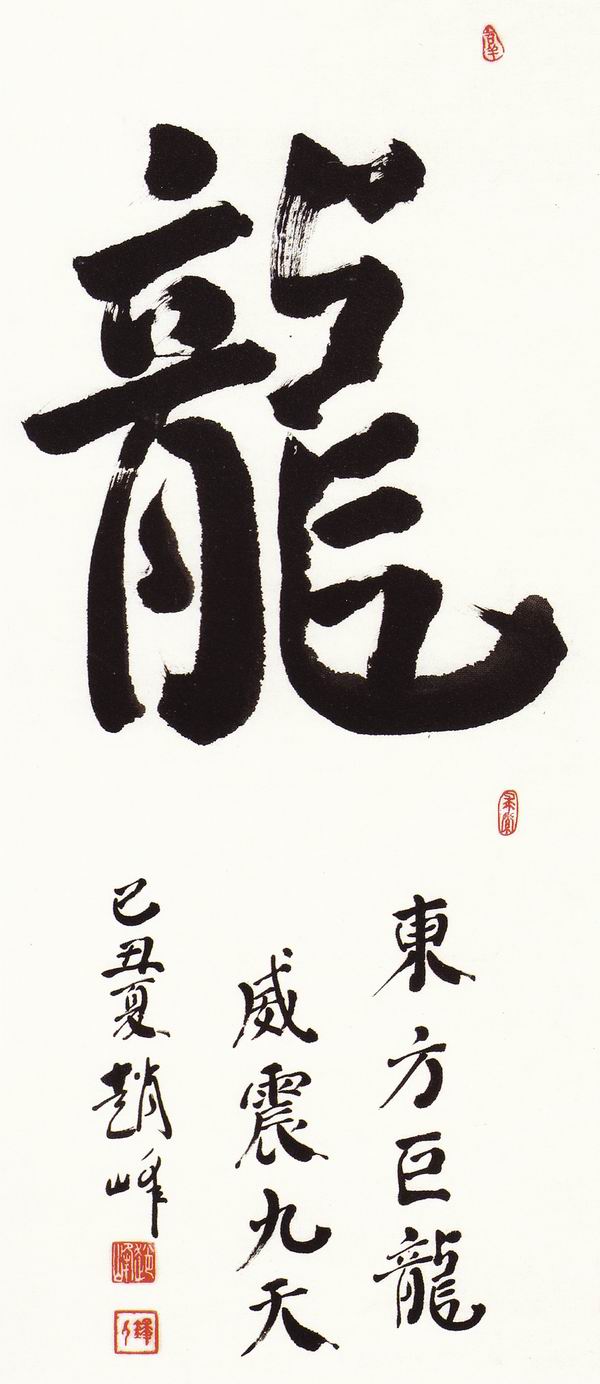 龍
東方巨龍
威震九天
己丑夏趙峰